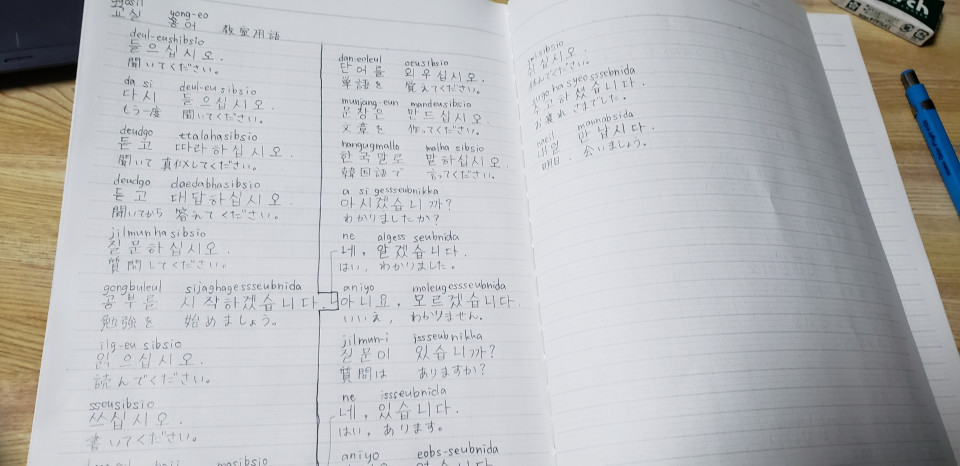 교실 용어 教室用語
yong-eo
deul-eusibsio
듣으십시오.
聞いてください。
da si deul-eu sibsio
다시 듣으십시오.
もう一度 聞いてください。
deudgo ttalahasibsio
듣고 따라하십시오.
聞いて 真似してください。
deudgo daedabhasibsio
듣고 대답하십시오.
聞いてから 答えてください。
jilmun ha sibsio
질문하십시오.
質問してください。
gongbuleul sijaghagessseubnida
공부를 시작하겠습니다.
勉強を 始めましょう。
ilg-eu sibsio
읽으십시오.
読んでください。
sseusibsio
쓰십시오.
書いてください。
masibsio
dan-eoleul oeusibsio
단어를 외우십시오.
単語を 覚えてください。
munjang-eun mandeusibsio
문장은 만드십시오.
文章を 作ってください。
hangugmallo malha sibsio
한국말로 말하십시오.
韓国語で 言ってください。
a si gessseubnikka
아시겠습니까?
わかりましたか?
ne algess seubnida
네, 알겠습니다.
はい, わかりました。
aniyo moleugessseubnida
아니요, 모르겠습니다.
いいえ, わかりません。
jilmun-i issseubnikka
질문이 있습니까?
質問は ありますか?
ne issseubnida
네, 있습니다.
はい, あります。
aniyo eobs-seubnida
sibsio
십시오.
ください。
sugo ha syeossseubnida
수고하셨습니다.
お疲れさまでした。
naeil mannabsida
내일 만납시다.
明日, 会いましょう。